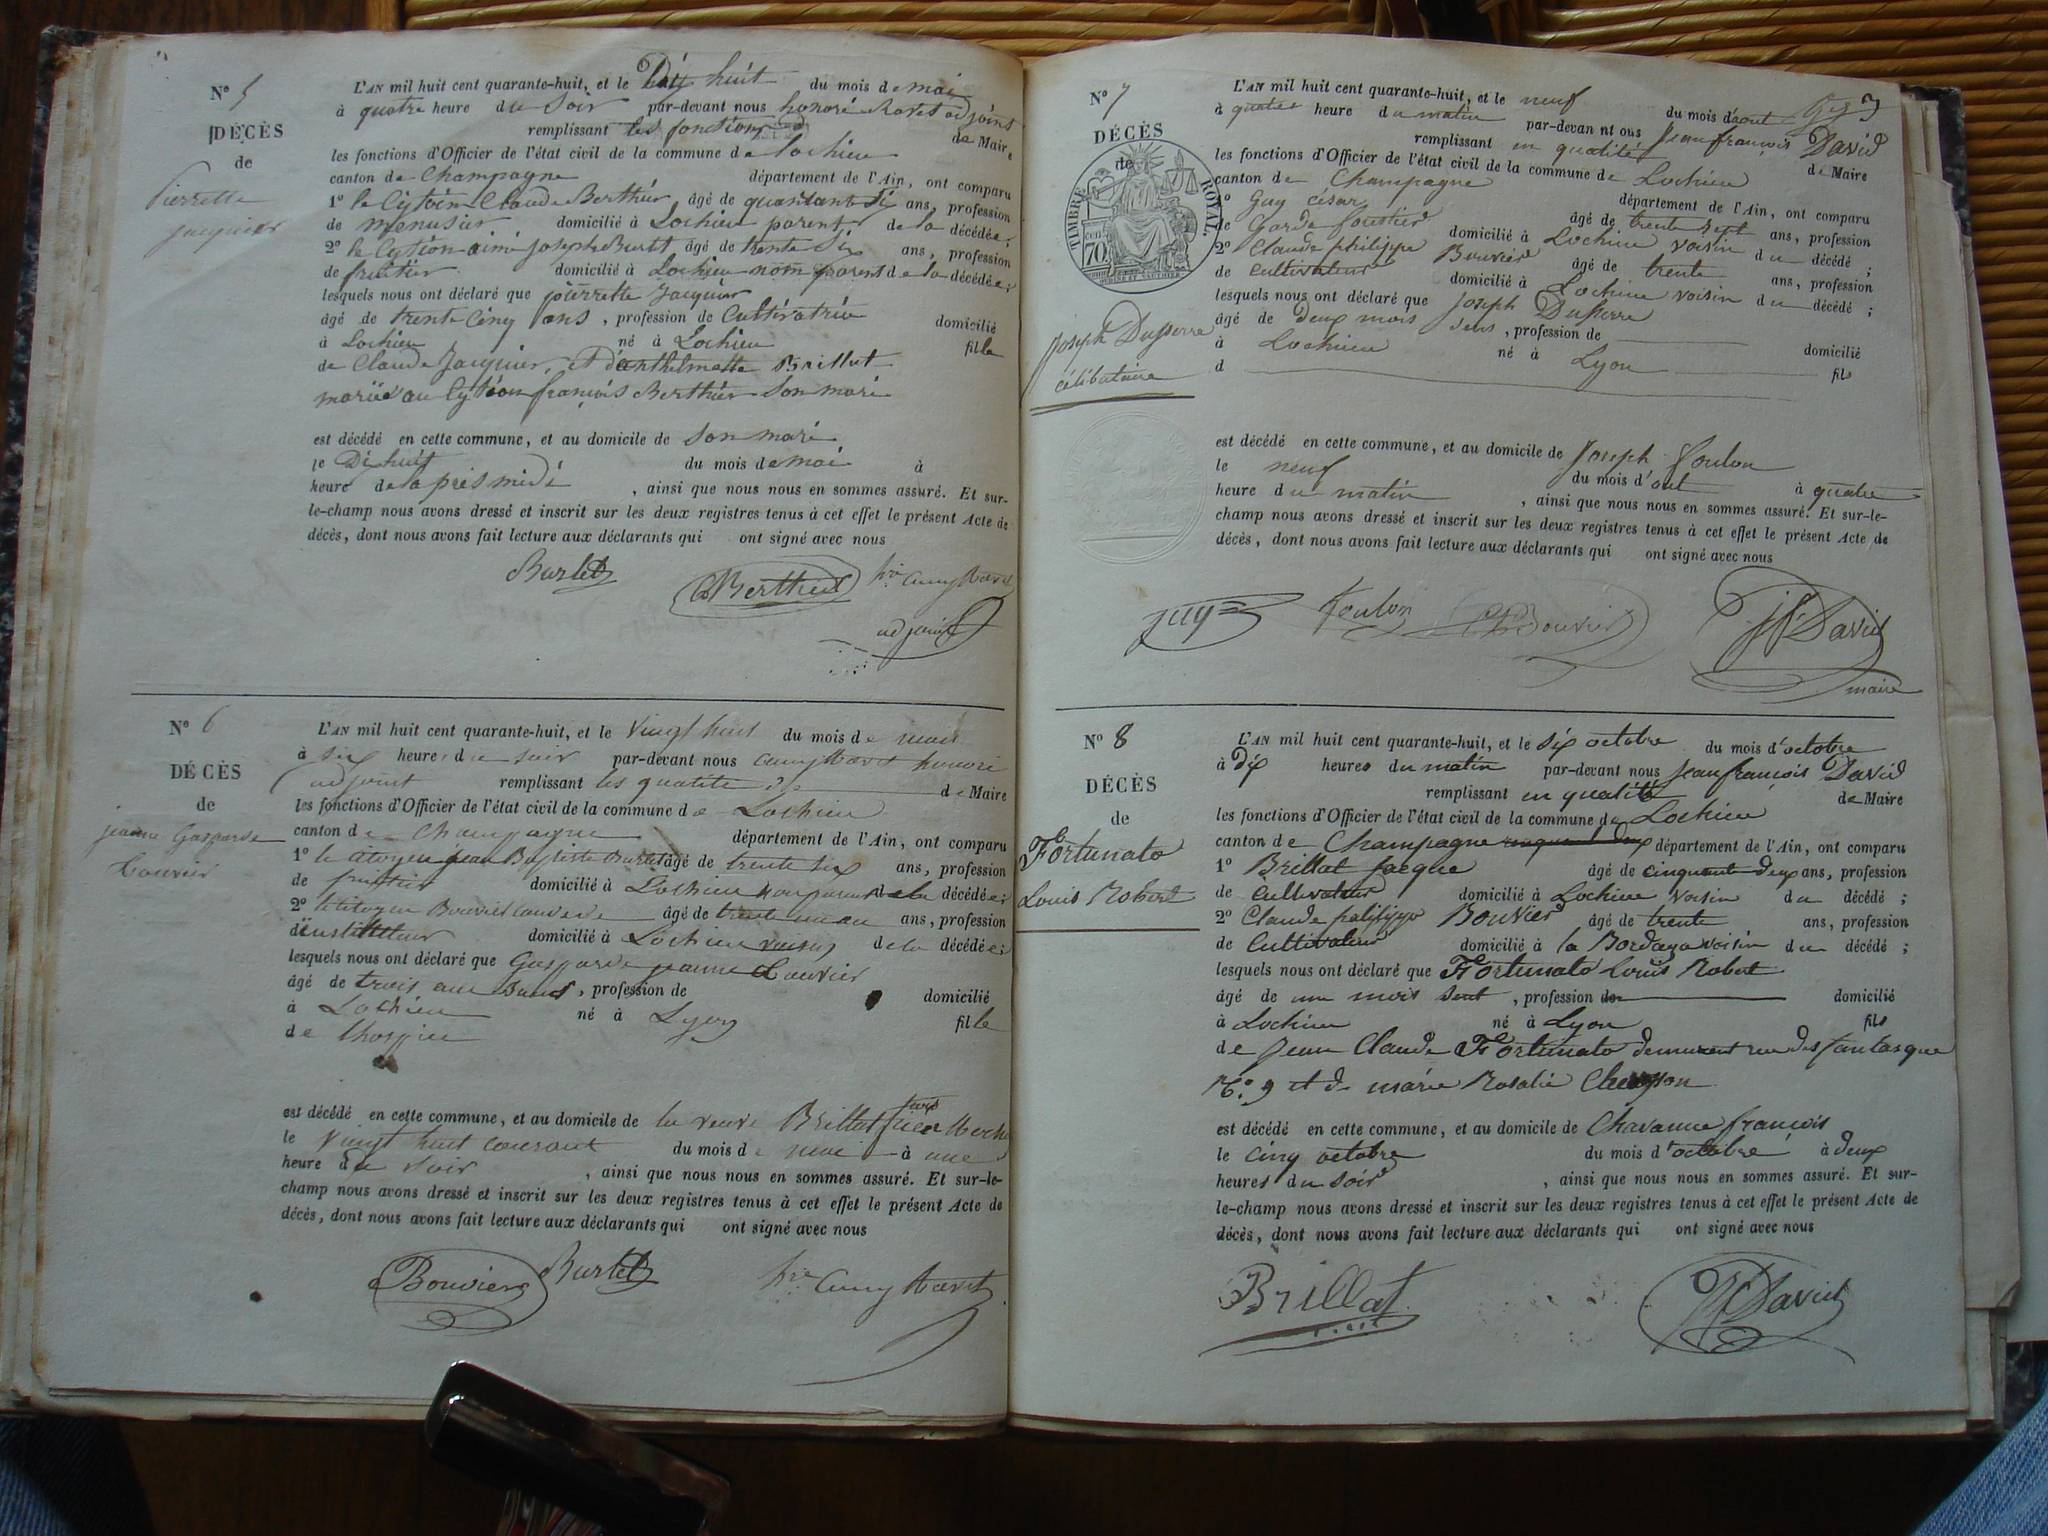 N° 5
DÉCÈS
de
Pierrette
jacquier
L'AN mil huit cent quarante-huit, et le Dix huit du mois de mai
à quatre heure du Soir par-devant nous honoré Ravet adjoint
remplissant les fonctions de Maire
les fonctions d'Officier de l'état civil de la commune de Lochieu
canton de Champagne département de l'Ain, ont comparu
1° le Cytoin Claude Berthier âgé de quarante Six ans, profession
de menusier domicilié à Lochieu parent de la décédée;
2° le Cytoin aimé joseph Burlet âgé de trente Six ans, profession
de fruitier domicilié à Lochieu nom parent de la décédée;
lesquels nous ont déclaré que pierrette Jacquier
âgé de trente Cinq ans, profession de Cultivatrice domicilié
à Lochieu né à Lochieu fille
de Claude Jacquier, et d'anthelmette Brillat
mariée au Cytoin françois Berthier Son mari
est décédé en cette commune, et au domicile de Son mari
le Dix huit du mois de mai à
heure de la près midi, ainsi que nous nous en sommes assuré. Et sur-
le-champ nous avons dressé et inscrit sur les deux registres tenus à cet effet le présent Acte de
décès, dont nous avons fait lecture aux déclarants qui ont signé avec nous
Burlet Berthier
adjoint
N° 6
DÉCÈS
de
jeanne Gasparde
Couvier
L'AN mil huit cent quarante-huit, et le Vingt huit du mois de mai
à Six heures du soir par-devant nous Cuny Ravet honoré
adjoint remplissant les qualité de de Maire
les fonctions d'Officier de l'état civil de la commune de Lochieu
canton de Champagne département de l'Ain, ont comparu
1° le citoyen jean Baptiste Burlet âgé de trente six ans, profession
de fruitier domicilié à Lochieu non parent de la décédée;
2° le citoyen Bouvier âgé de trente un an ans, profession
d'instituteur domicilié à Lochieu voisin de la décédée;
lesquels nous ont déclaré que Gasparde jeanne Couvier
âgé de trois ans, profession de domicilié
à Lochieu né à Lyon fille
de lhospice
est décédé en cette commune, et au domicile de la veuve Brillat
le Vingt huit courant du mois de mai à une
heure du Soir, ainsi que nous nous en sommes assuré. Et sur-le-
champ nous avons dressé et inscrit sur les deux registres tenus à cet effet le présent Acte de
décès, dont nous avons fait lecture aux déclarants qui ont signé avec nous
Bouvier Burlet Cuny Ravet
N° 7
DÉCÈS
de
TIMBRE ROYAL.
70
Joseph Dupierre
célibataire
L'AN mil huit cent quarante-huit, et le neuf du mois d'aout
à quatre heure du matin par-devant nous Jean françois David
remplissant en qualité de Maire
les fonctions d'Officier de l'état civil de la commune de Lochieu
canton de Champagne département de l'Ain, ont comparu
1° Guy césar âgé de trente sept ans, profession
de Garde foustier domicilié à Lochieu voisin du décédé;
2° Claude philippe Bouvier âgé de trente ans, profession
de cultivateur domicilié à Lochieu voisin du décédé;
lesquels nous ont déclaré que Joseph Dupierre
âgé de deux mois, profession de domicilié
à Lochieu né à Lyon fils
d
est décédé en cette commune, et au domicile de Joseph foulon
le neuf du mois d'out à quatre
heure du matin, ainsi que nous nous en sommes assuré. Et sur-le-
champ nous avons dressé et inscrit sur les deux registres tenus à cet effet le présent Acte de
décès, dont nous avons fait lecture aux déclarants qui ont signé avec nous
guy foulon Bouvier JF David
maire
N° 8
DÉCÈS
de
Fortunato
Louis Robert
L'AN mil huit cent quarante-huit, et le Six octobre du mois d'octobre
à Dix heures du matin par-devant nous Jean françois David
remplissant en qualité de Maire
les fonctions d'Officier de l'état civil de la commune de Lochieu
canton de Champagne cinquant deux département de l'Ain, ont comparu
1° Brillat Jacque âgé de cinquante Deux ans, profession
de cultivateur domicilié à Lochieu Voisin du décédé;
2° Claude philippe Bouvier âgé de trente ans, profession
de Cultivateur domicilié à la Bordaza voisin du décédé;
lesquels nous ont déclaré que Fortunato louis Robert
âgé de un mois, profession de domicilié
à Lochieu né à Lyon fils
de Jean Claude Fortunato demurent rue des fantasque
N°. 9 et de marie Rosalie
est décédé en cette commune, et au domicile de Chavanne françois
le cinq octobre du mois d'octobre à deux
heures du soir, ainsi que nous nous en sommes assuré. Et sur-
le-champ nous avons dressé et inscrit sur les deux registres tenus à cet effet le présent Acte de
décès, dont nous avons fait lecture aux déclarants qui ont signé avec nous
Brillat JF David